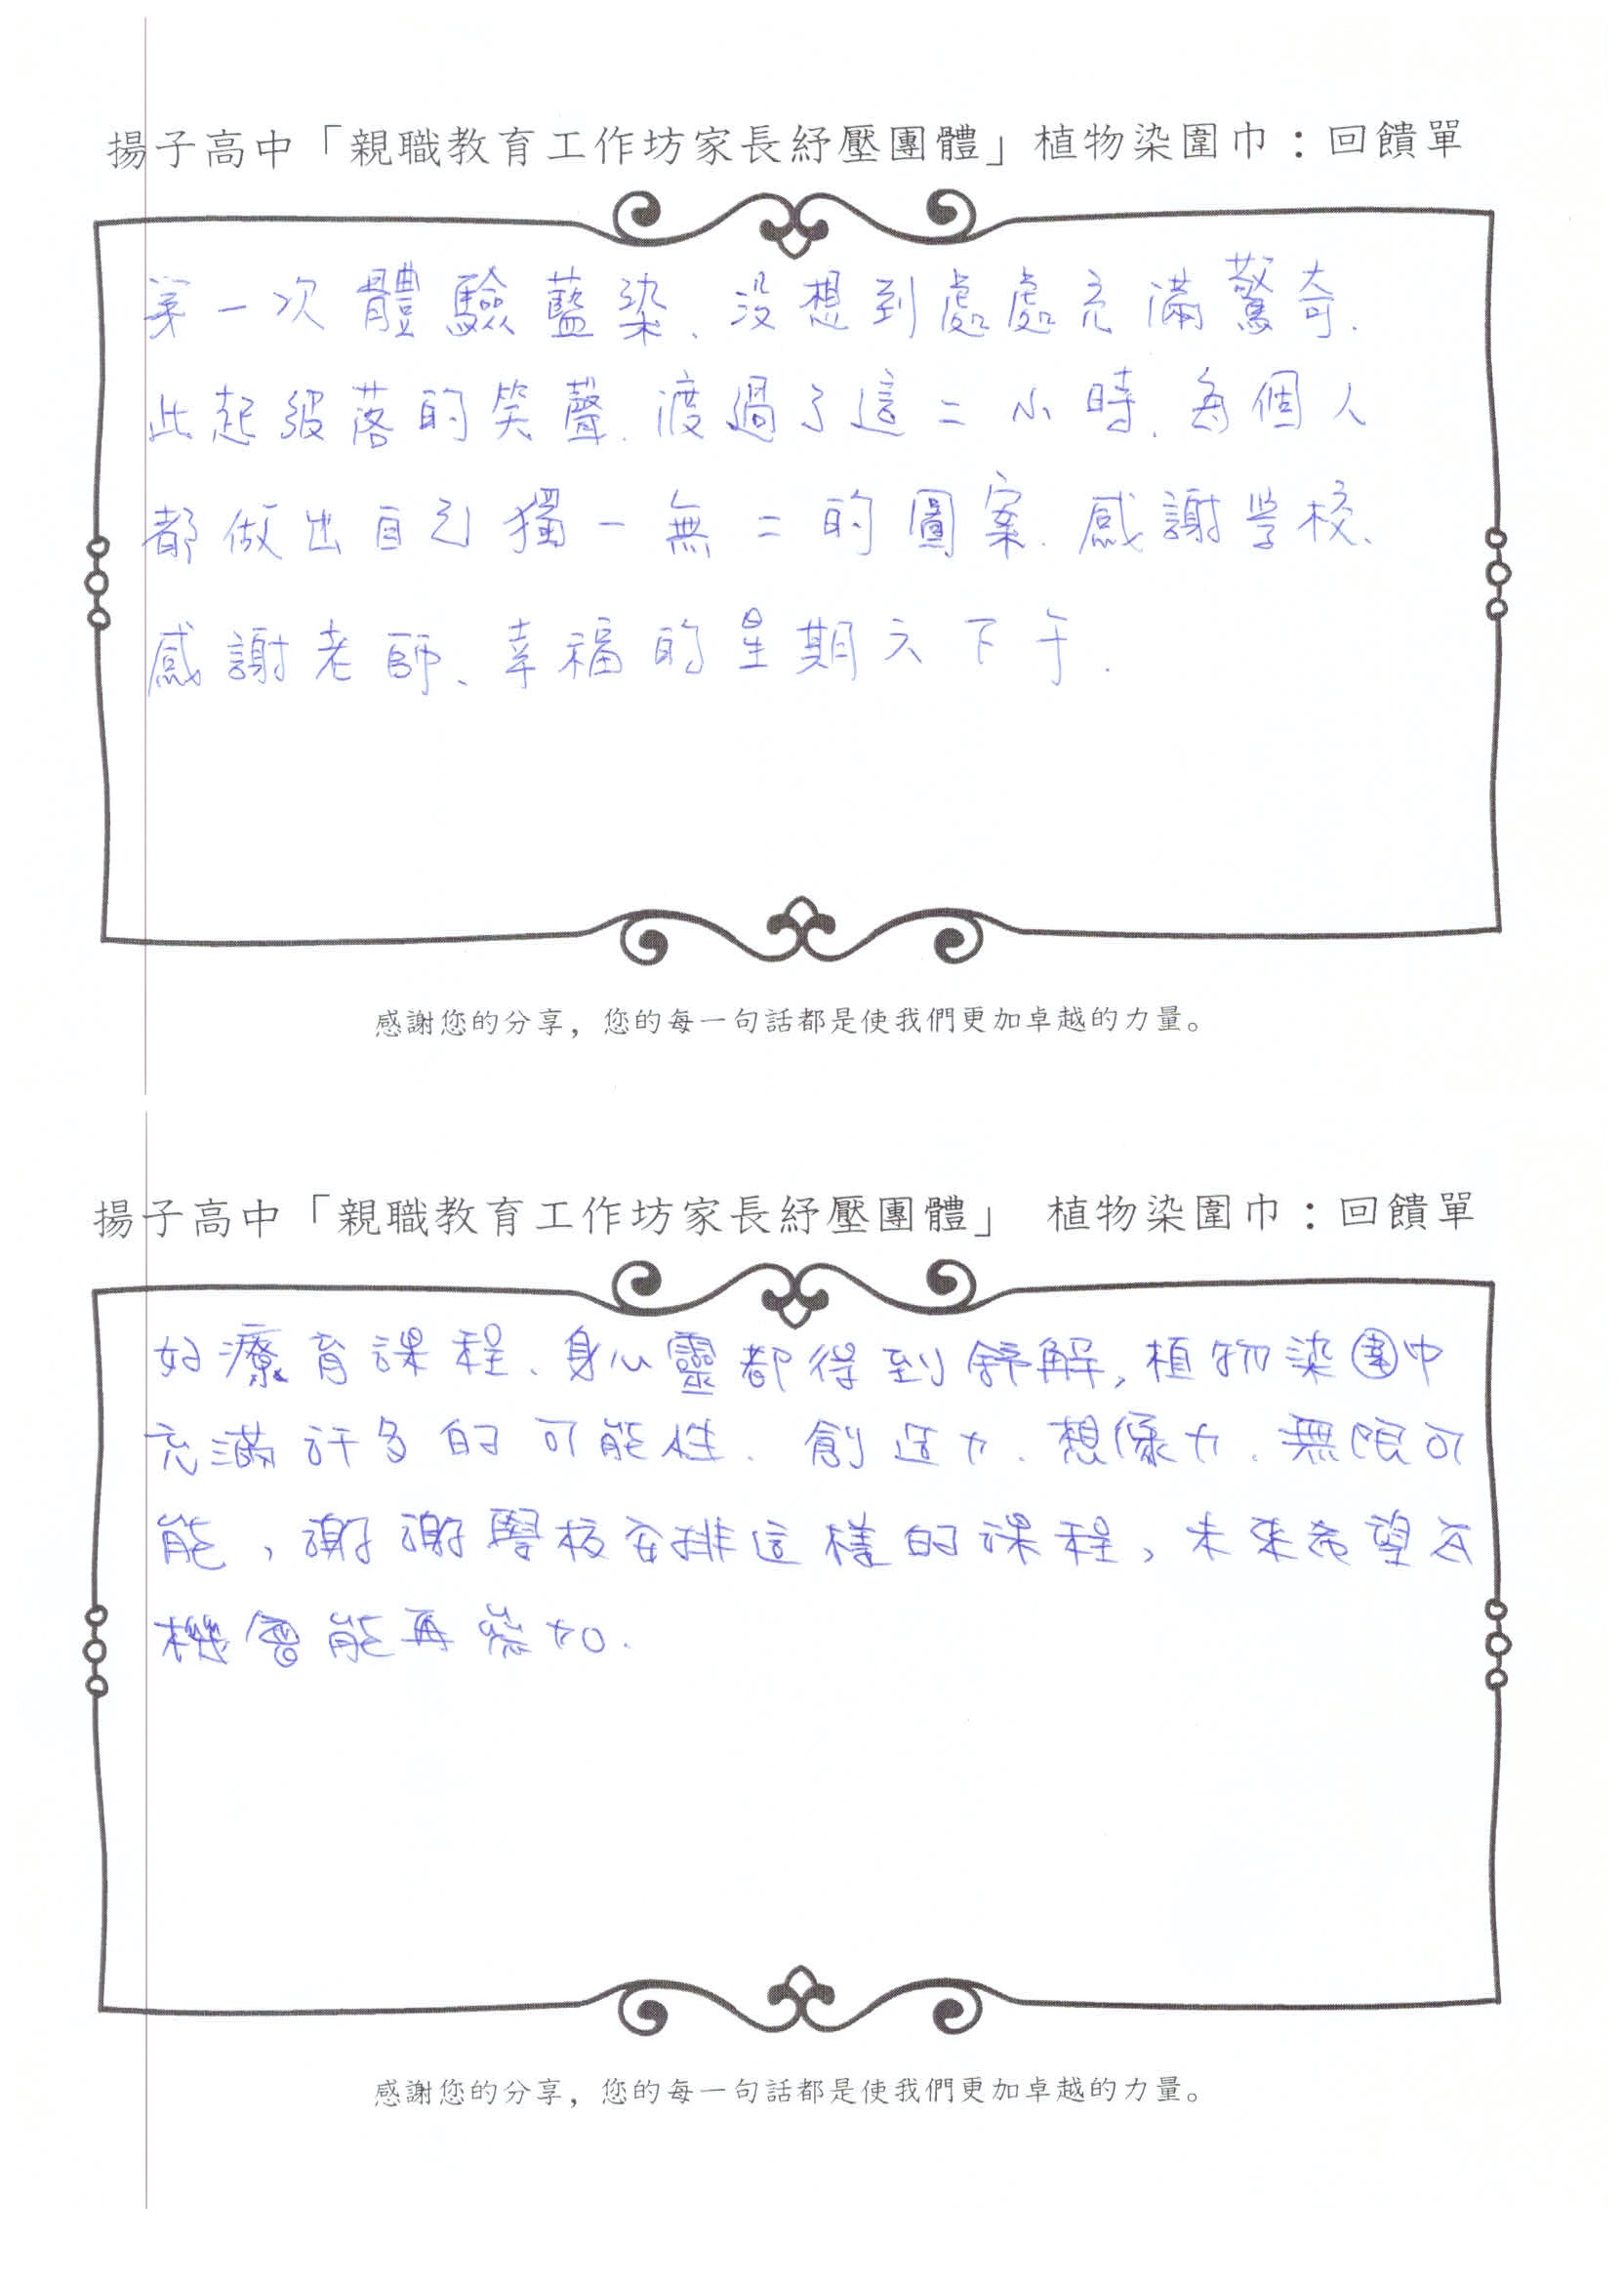 揚子高中「親職教育工作坊家長紓壓團體」植物染圍巾：回饋單
第一次體驗藍染、沒想到處處充滿驚奇.
此起彼落的笑聲.渡過了這二小時.每個人
都做出自己獨一無二的圖案.感謝学校、
感謝老師、幸福的星期六下午.
感謝您的分享，您的每一句話都是使我們更加卓越的力量。
揚子高中「親職教育工作坊家長紓壓團體」 植物染圍巾：回饋單
好療育課程、身心靈都得到舒解,植物染圍巾
充滿許多的可能性.創造力.想像力.無限可
能,謝謝學校安排這樣的課程,未來希望有
機會能再參加.
感謝您的分享，您的每一句話都是使我們更加卓越的力量。